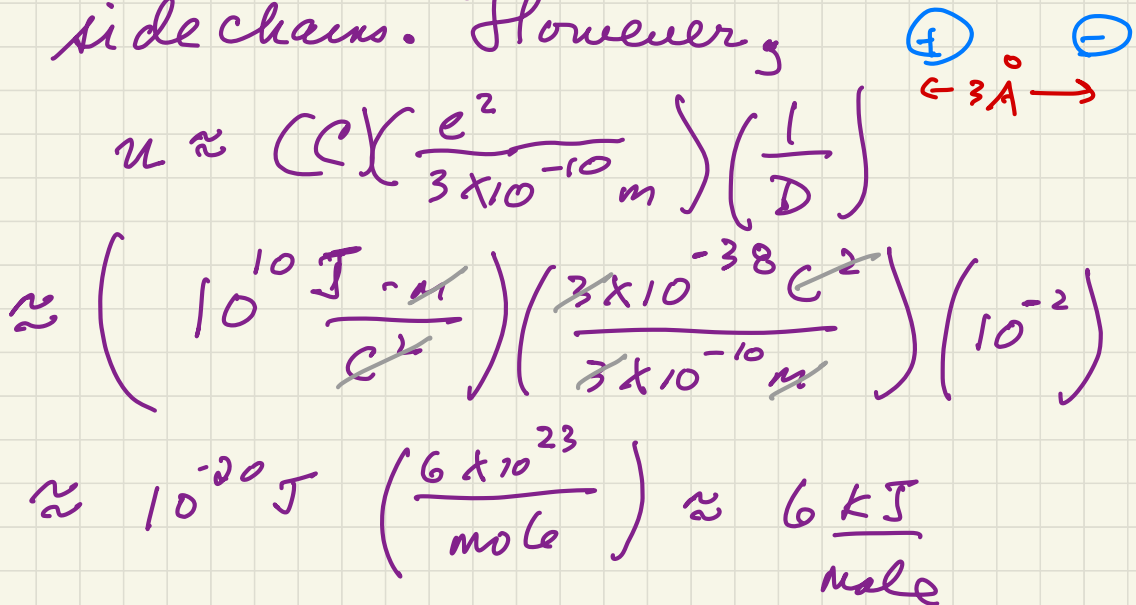 sidechains. However,
+ −
← 3 Å →
u ≈ (C)(e²/(3×10⁻¹⁰ m))(1/D)
≈ (10¹⁰ J-m/C²)(3×10⁻³⁸ C²/(3×10⁻¹⁰ m))(10⁻²)
≈ 10⁻²⁰ J (6×10²³/mole) ≈ 6 kJ/mole